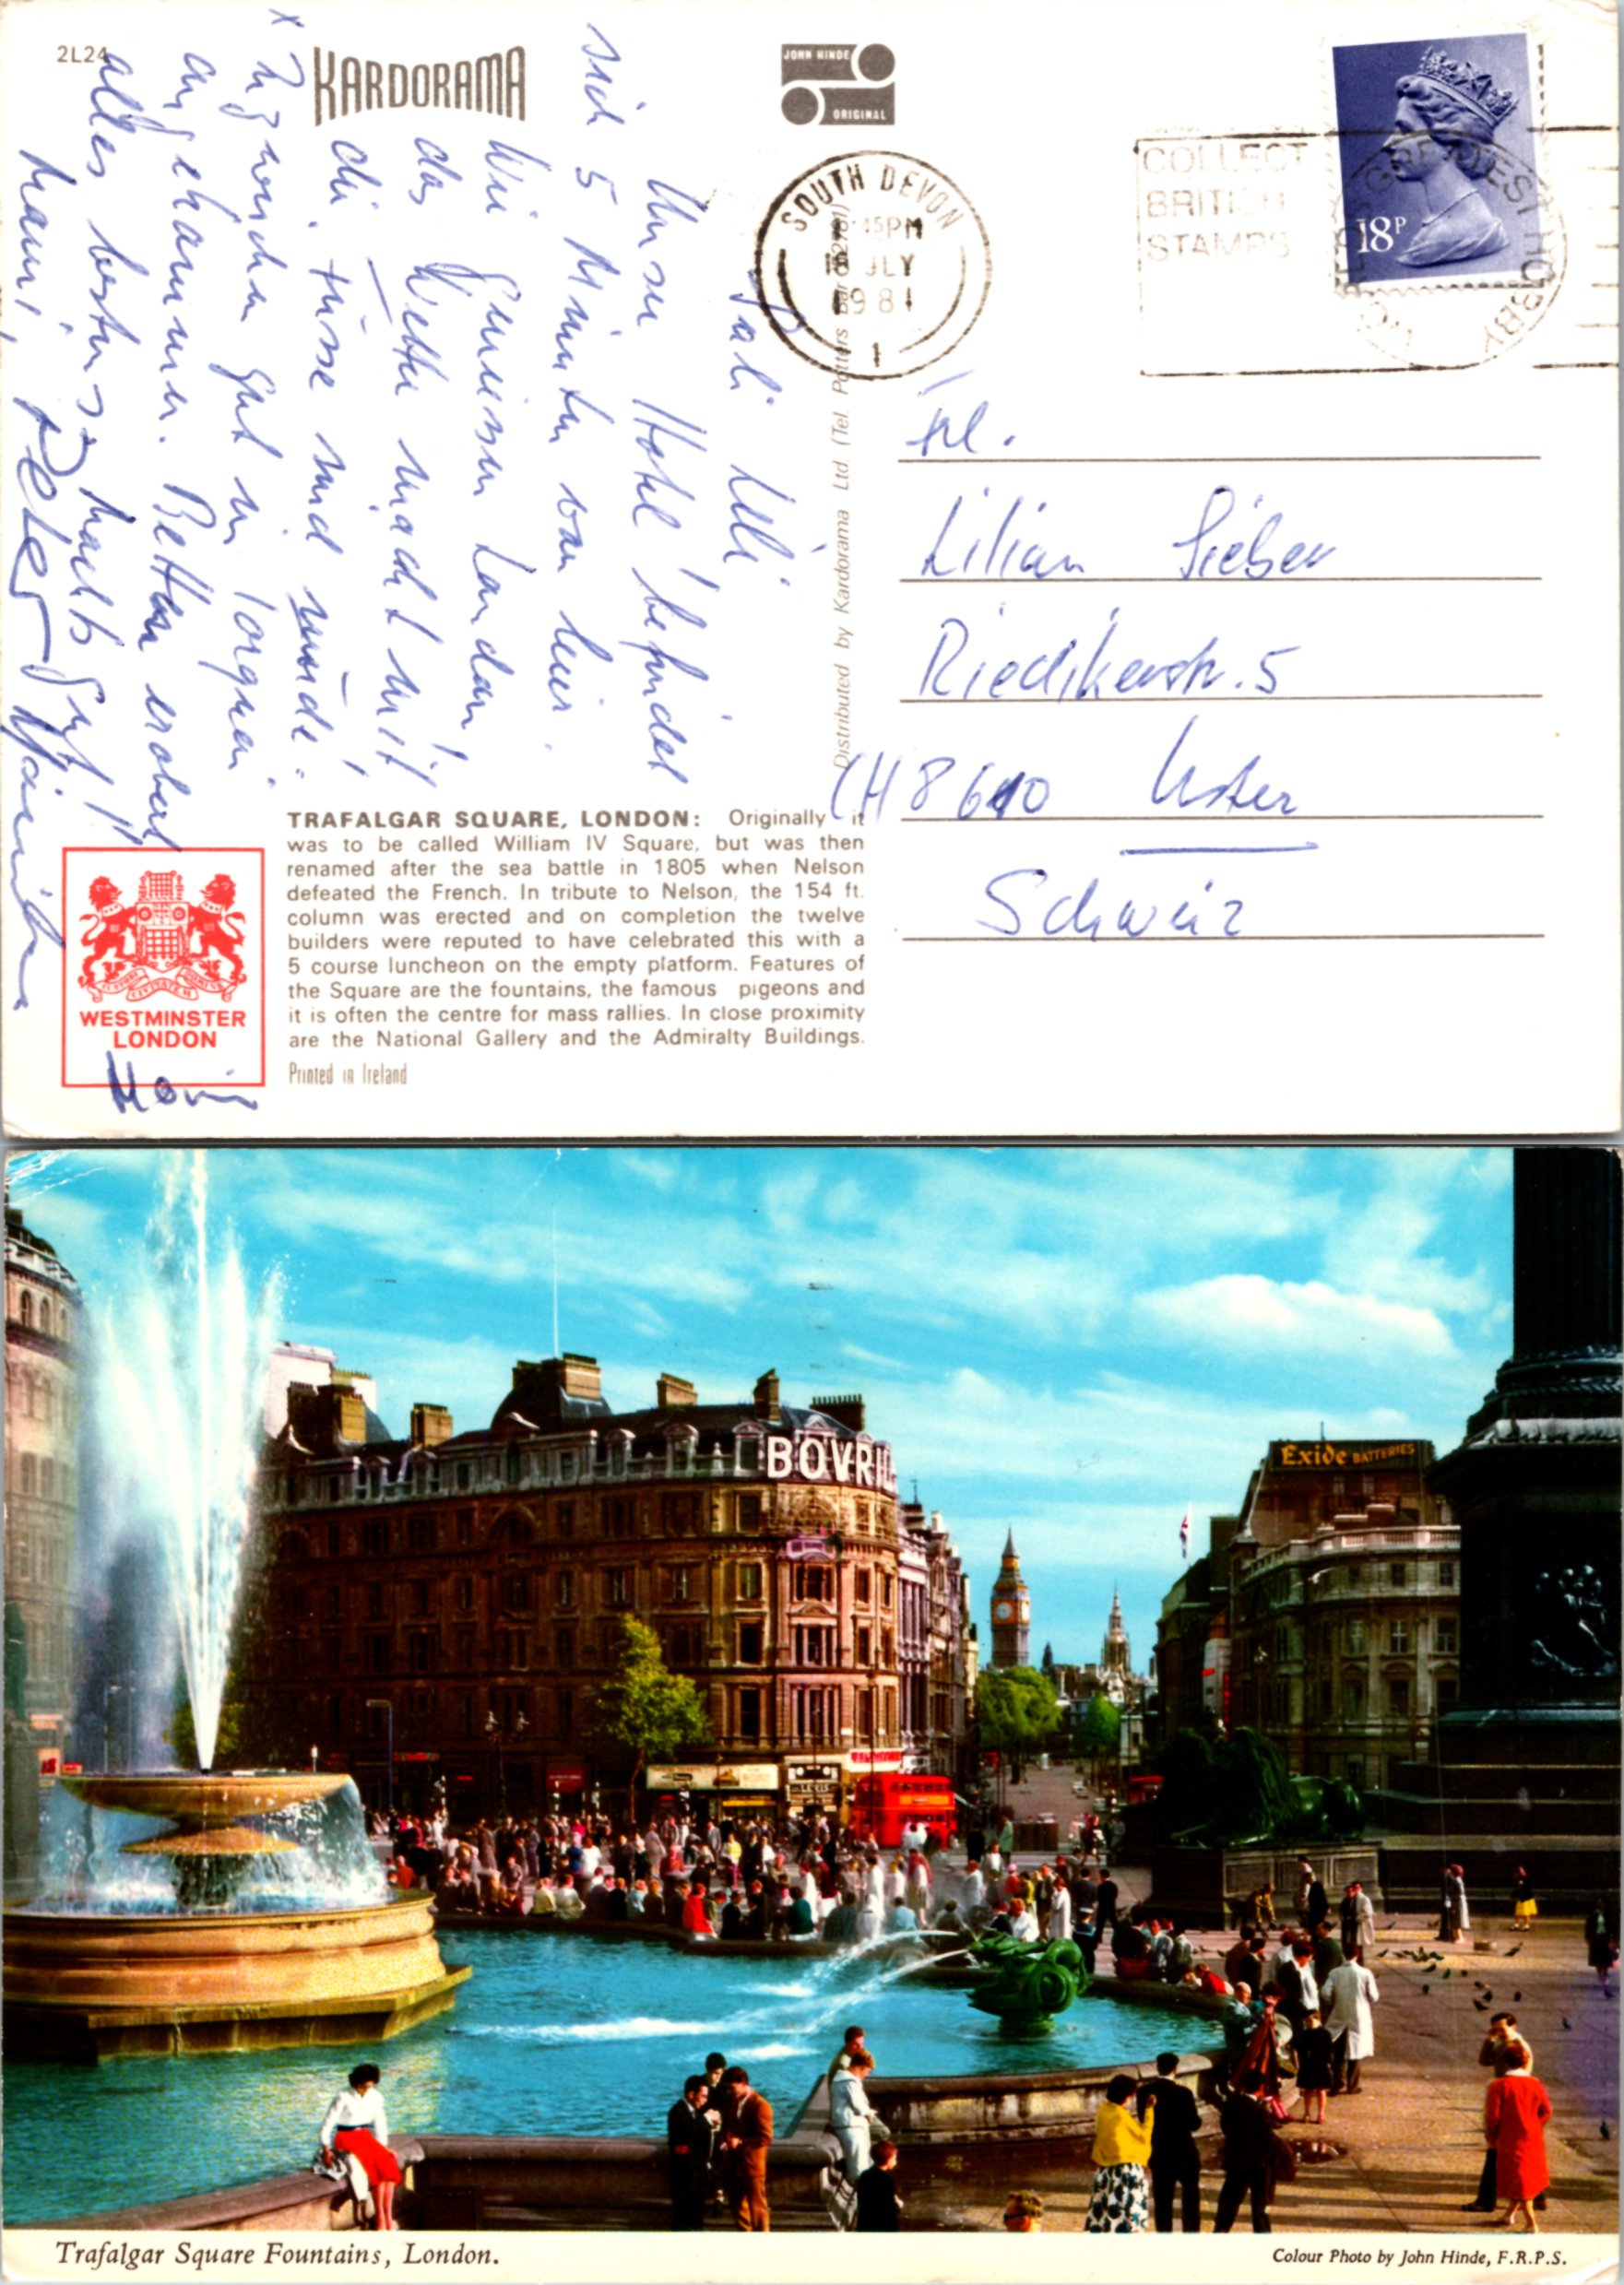 2L24
KARDORAMA
JOHN HINDE
ORIGINAL
SOUTH DEVON
15PM
JLY
1981
1
COLLECT
BRITISH
STAMPS
18P
Sali Lilli
Unser Hotel befindet
sich 5 Minuten von hier.
Wir geniessen London!
das Wetter macht mit,
die Füsse sind müde!
x Inzwischen gut in Torquai
angekommen. Betten erobert
alles bestens, haerts
Mami, Peter
Distributed by Kardorama Ltd. (Tel. Potters Bar
Frl.
Lilian Sieber
Riedikerstr. 5
CH 8610 Uster
Schweiz
TRAFALGAR SQUARE, LONDON: Originally it
was to be called William IV Square, but was then
renamed after the sea battle in 1805 when Nelson
defeated the French. In tribute to Nelson, the 154 ft.
column was erected and on completion the twelve
builders were reputed to have celebrated this with a
5 course luncheon on the empty platform. Features of
the Square are the fountains, the famous pigeons and
it is often the centre for mass rallies. In close proximity
are the National Gallery and the Admiralty Buildings.
Printed in Ireland
WESTMINSTER
LONDON
BOVRIL
Exide BATTERIES
Trafalgar Square Fountains, London.
Colour Photo by John Hinde, F.R.P.S.